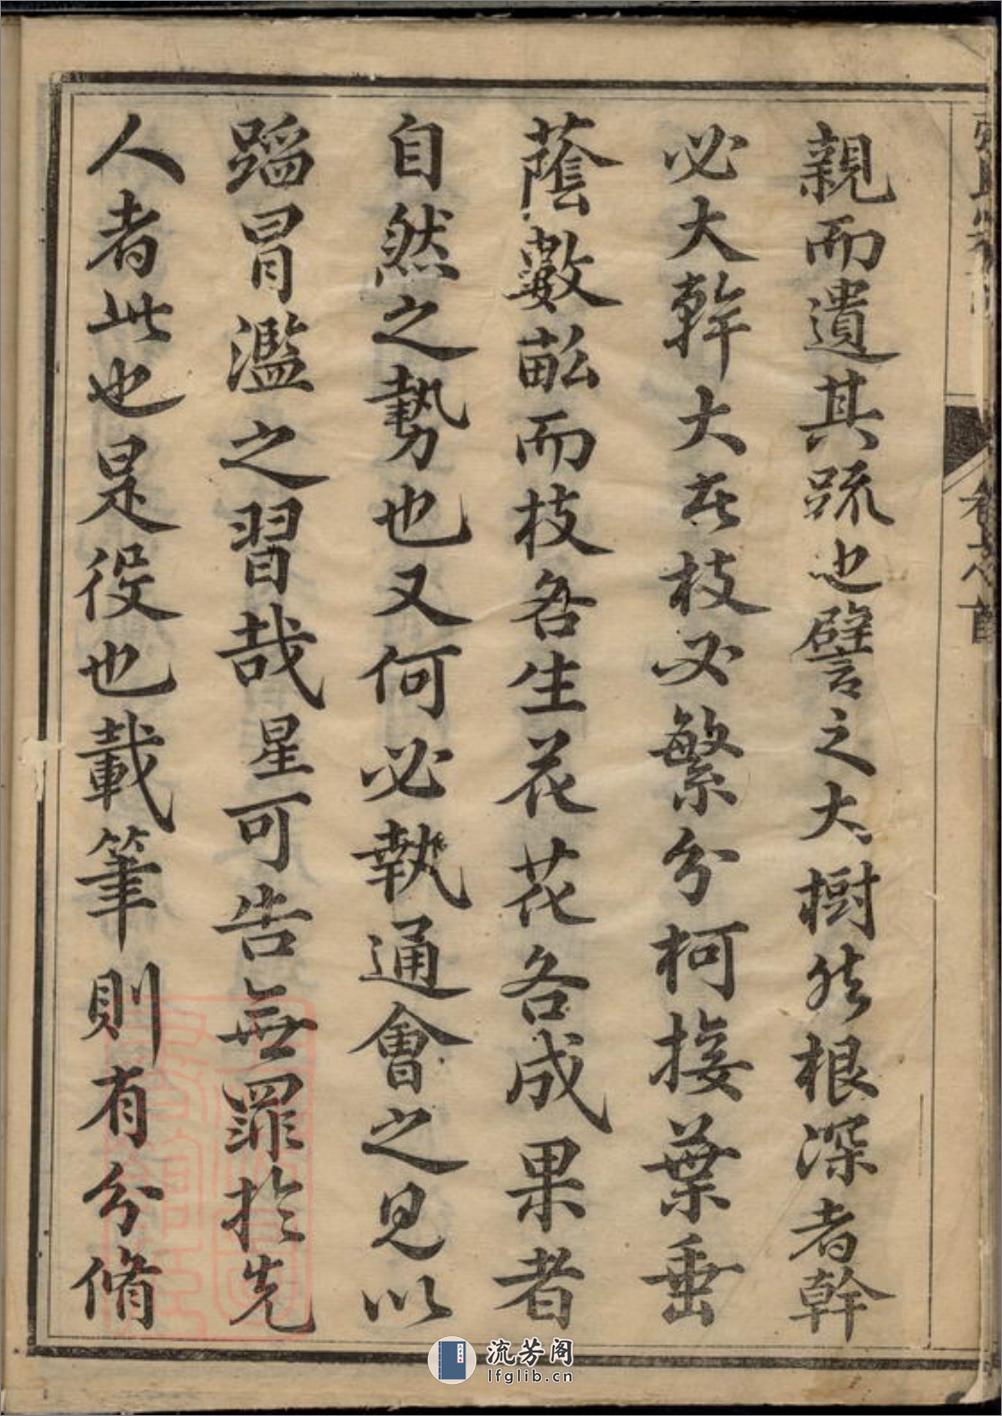 親而遺其疏也譬之大樹然根深者幹
必大幹大者枝必繁分柯接葉垂
蔭數畝而枝各生花花各成果者
自然之勢也又何必執通會之見以
蹈冒濫之習哉星可告無罪於先
人者此也是役也載筆則有分脩
卷之首
流芳阁
lfglib.cn